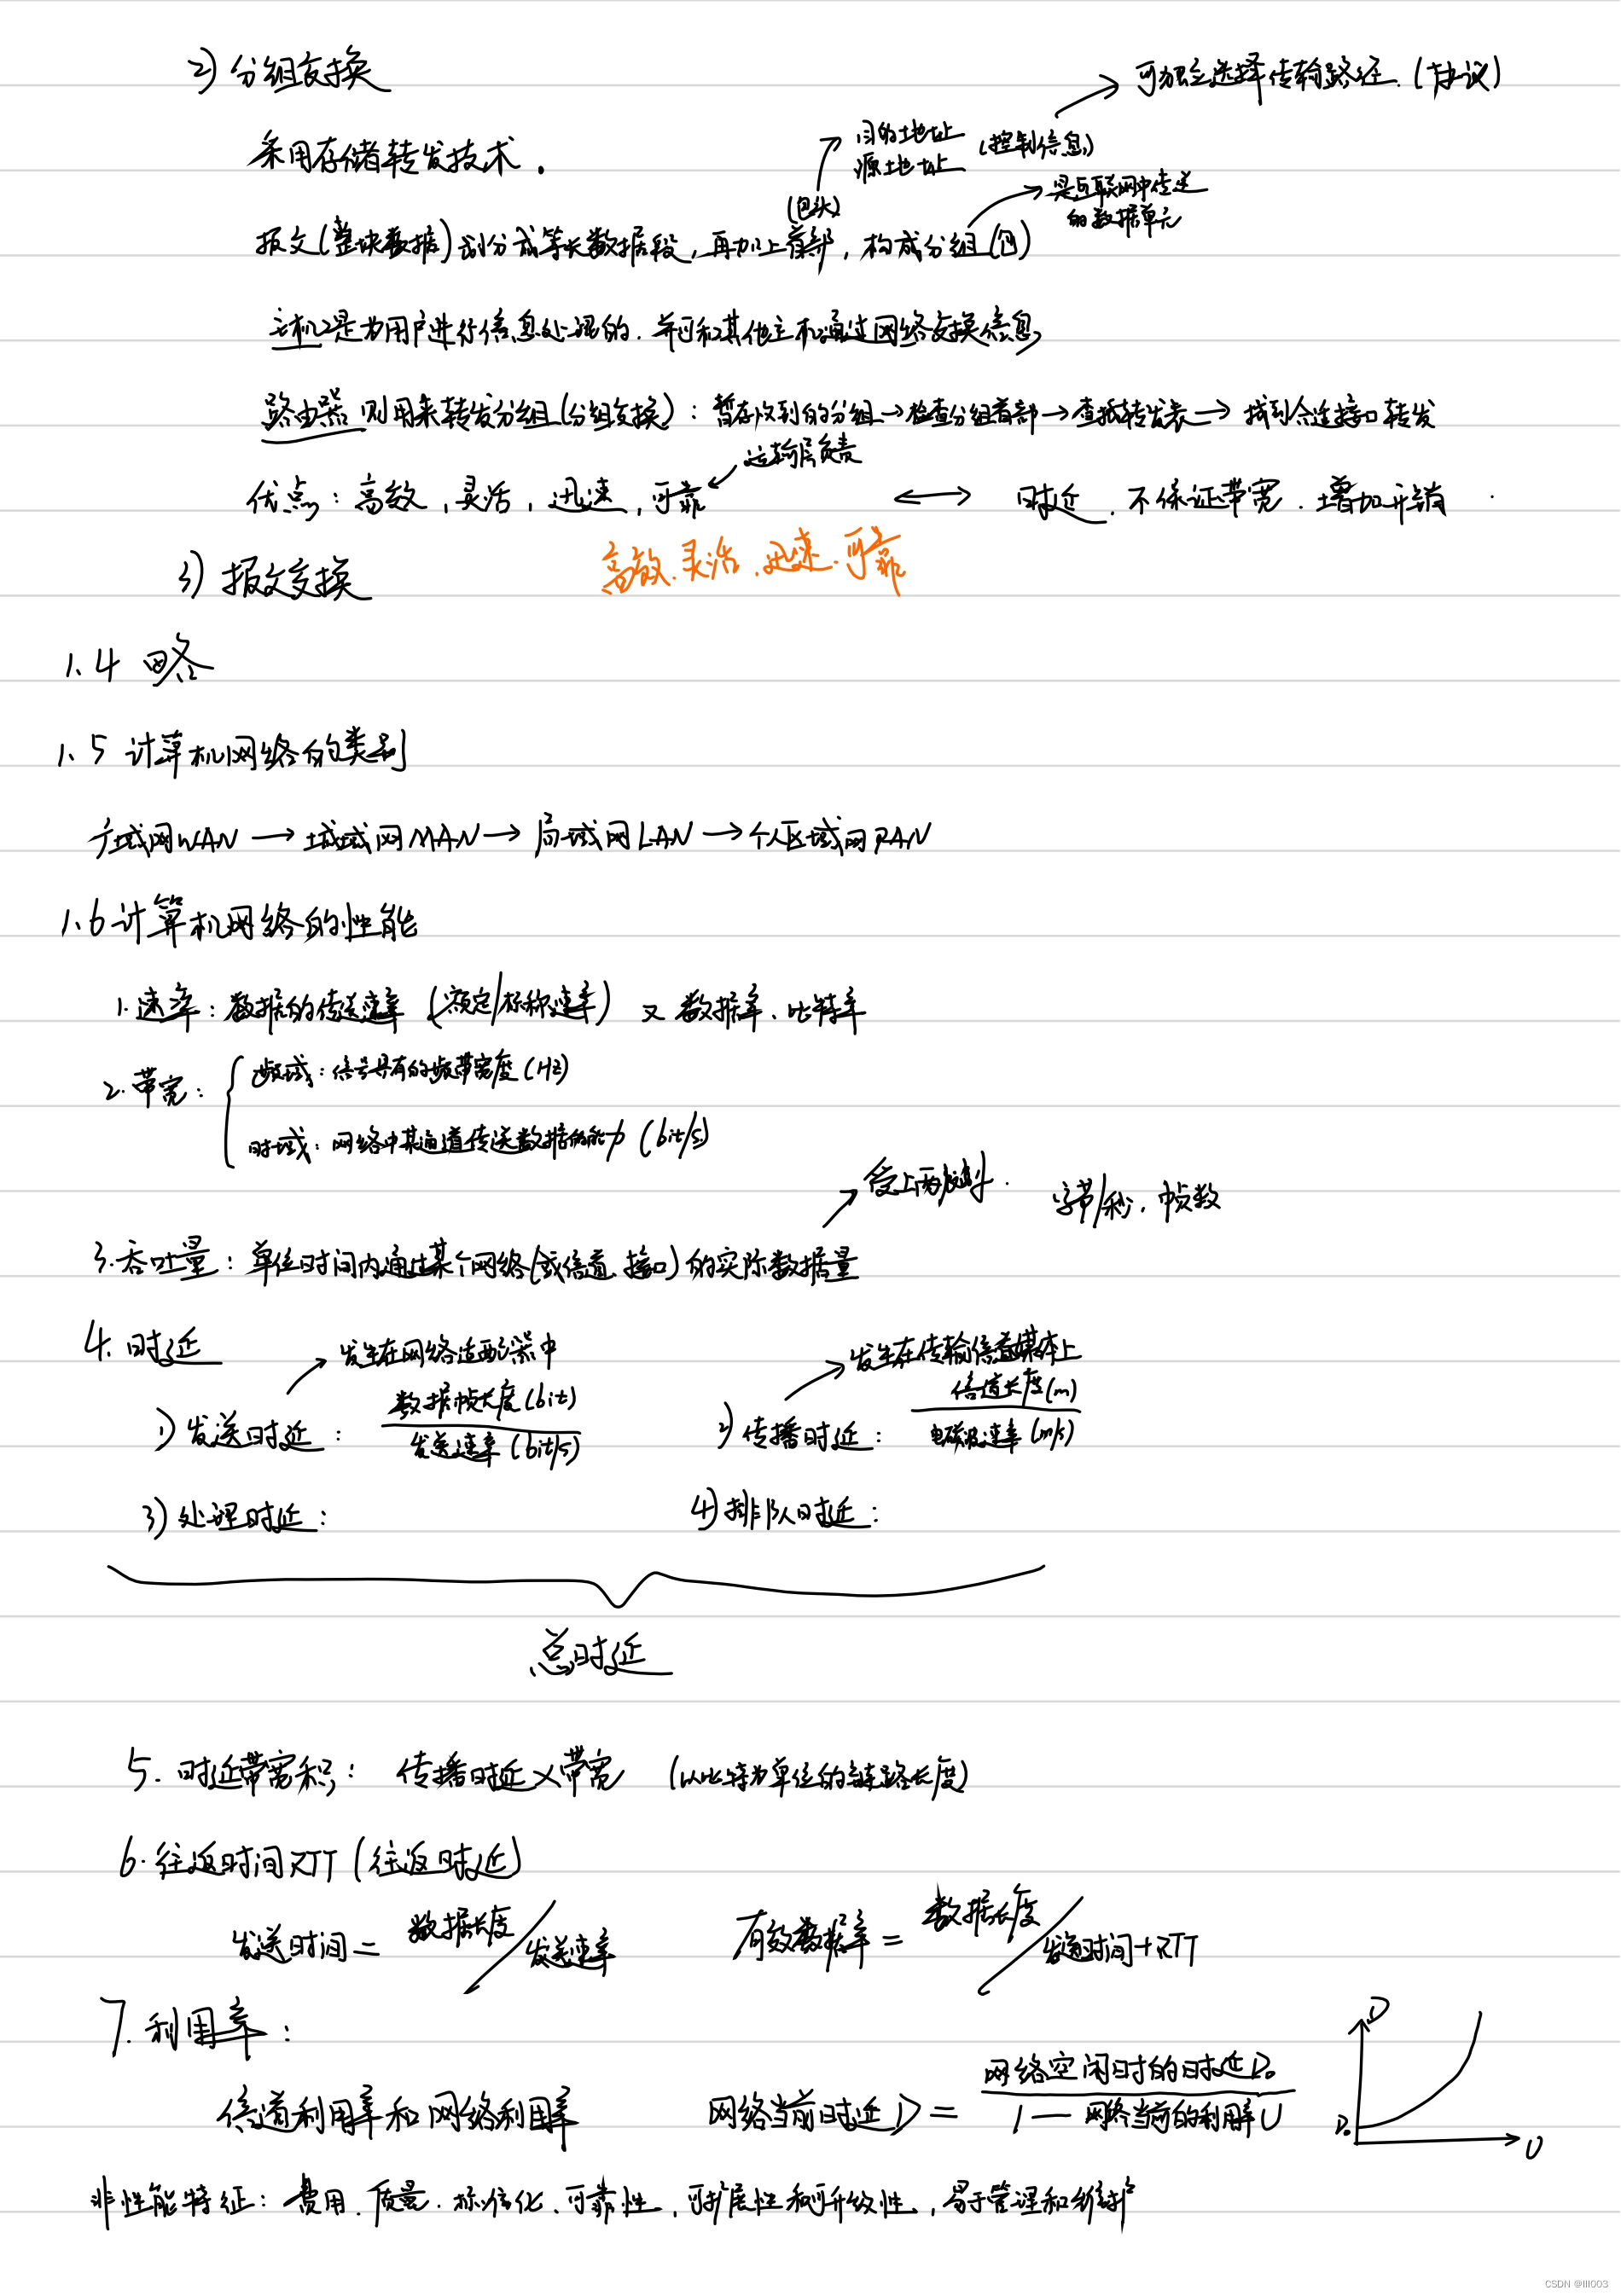 2) 分组交换
可独立选择传输路径.(协议)
采用存储转发技术.
目的地址
源地址
(控制信息)
(包头)
是互联网中传送
的数据单元
报文(整块数据)划分成等长数据段,再加上首部,构成分组(包)
主机是为用户进行信息处理的.并可和其他主机通过网络交换信息
路由器 则用来转发分组(分组交换):暂存收到的分组→检查分组首部→查找转发表→找到合适接口转发
运输层负责
优点:高效,灵活,迅速,可靠 ←→ 时延.不保证带宽.增加开销
高效.灵活.迅速.可靠
3) 报文交换
1.4 略
1.5 计算机网络的类别
广域网WAN→城域网MAN→局域网LAN→个人区域网PAN
1.6 计算机网络的性能
1.速率:数据的传送速率(额定/标称速率) 又 数据率、比特率
2.带宽:
频域:信号具有的频带宽度(Hz)
时域:网络中某通道传送数据的能力(bit/s)
受上两限制.
字节/秒.帧数
3.吞吐量:单位时间内通过某个网络(或信道、接口)的实际数据量
4.时延
发生在网络适配器中
发生在传输信道媒体上
1)发送时延: 数据帧长度(bit) / 发送速率(bit/s)
2)传播时延: 信道长度(m) / 电磁波速率(m/s)
3)处理时延:
4)排队时延:
总时延
5.时延带宽积: 传播时延×带宽 (以比特为单位的链路长度)
6.往返时间RTT(往返时延)
发送时间= 数据长度/发送速率
有效数据率= 数据长度/发送时间+RTT
7.利用率:
信道利用率和网络利用率
网络当前时延D= 网络空闲时的时延D₀ / 1—网络当前的利用率U
D
D₀
U
非性能特征:费用.质量.标准化.可靠性.可扩展性和可升级性.易于管理和维护
CSDN @lll003